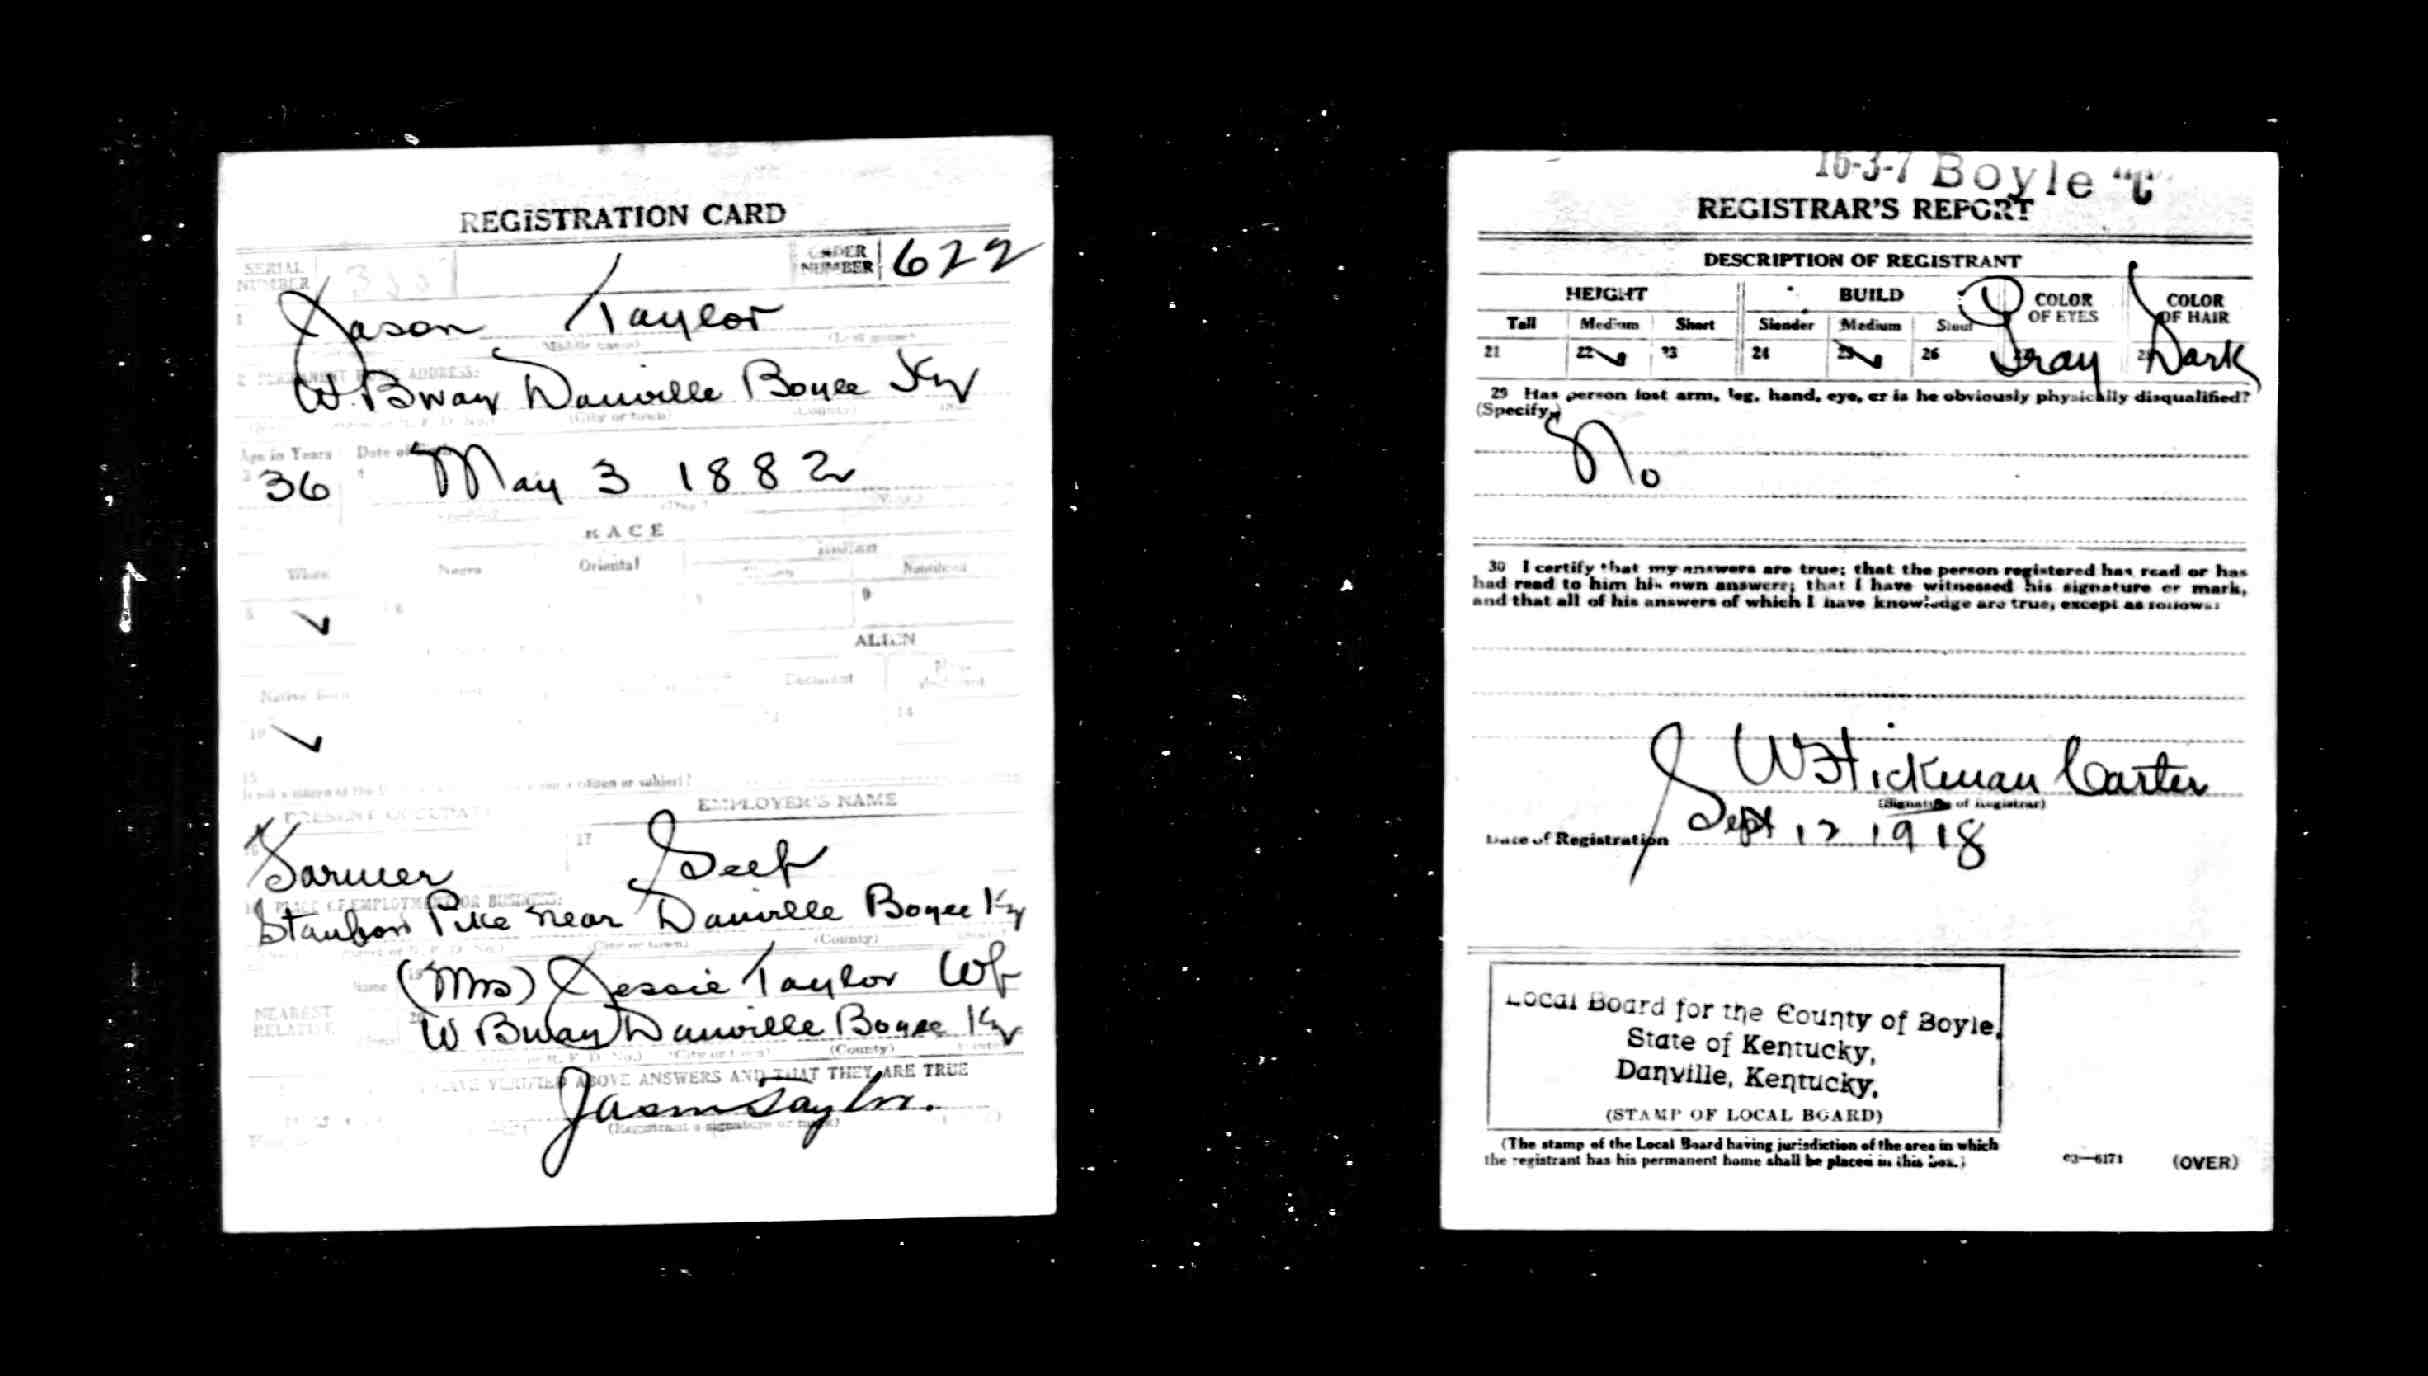 REGISTRATION CARD
SERIAL NUMBER
ORDER NUMBER 622
1 Jason Taylor
(Middle name) (Last name)
2 PERMANENT HOME ADDRESS:
W. Bway Danville Boyle Ky
(City or town) (County)
Age in Years Date of Birth
3 36 4 May 3 1882
(Day)
RACE
White Negro Oriental Indian
Noncitizen
5 ✓ 6 9
ALIEN
Native Born Declarant
10 ✓ 14
15
citizen or subject?
PRESENT OCCUPATION EMPLOYER'S NAME
16 Farmer 17 Self
PLACE OF EMPLOYMENT OR BUSINESS:
Stanford Pike near Danville Boyle Ky
(City or town) (County)
NEAREST RELATIVE
Name 19 (Mrs) Jessie Taylor Wf
20 W Bway Danville Boyle Ky
(City or town) (County)
HAVE VERIFIED ABOVE ANSWERS AND THAT THEY ARE TRUE
Jason Taylor.
(Registrant's signature or mark)
16-3-7 Boyle "C"
REGISTRAR'S REPORT
DESCRIPTION OF REGISTRANT
HEIGHT BUILD COLOR OF EYES COLOR OF HAIR
Tall Medium Short Slender Medium Stout
21 22 ✓ 23 24 25 ✓ 26 Gray Dark
29 Has person lost arm, leg, hand, eye, or is he obviously physically disqualified?
(Specify.)
No
30 I certify that my answers are true; that the person registered has read or has
had read to him his own answers; that I have witnessed his signature or mark,
and that all of his answers of which I have knowledge are true, except as follows:
W Hickman Carter
(Signature of Registrar)
Date of Registration Sept 12 1918
Local Board for the County of Boyle,
State of Kentucky,
Danville, Kentucky,
(STAMP OF LOCAL BOARD)
(The stamp of the Local Board having jurisdiction of the area in which
the registrant has his permanent home shall be placed in this box.)
03—6171 (OVER)